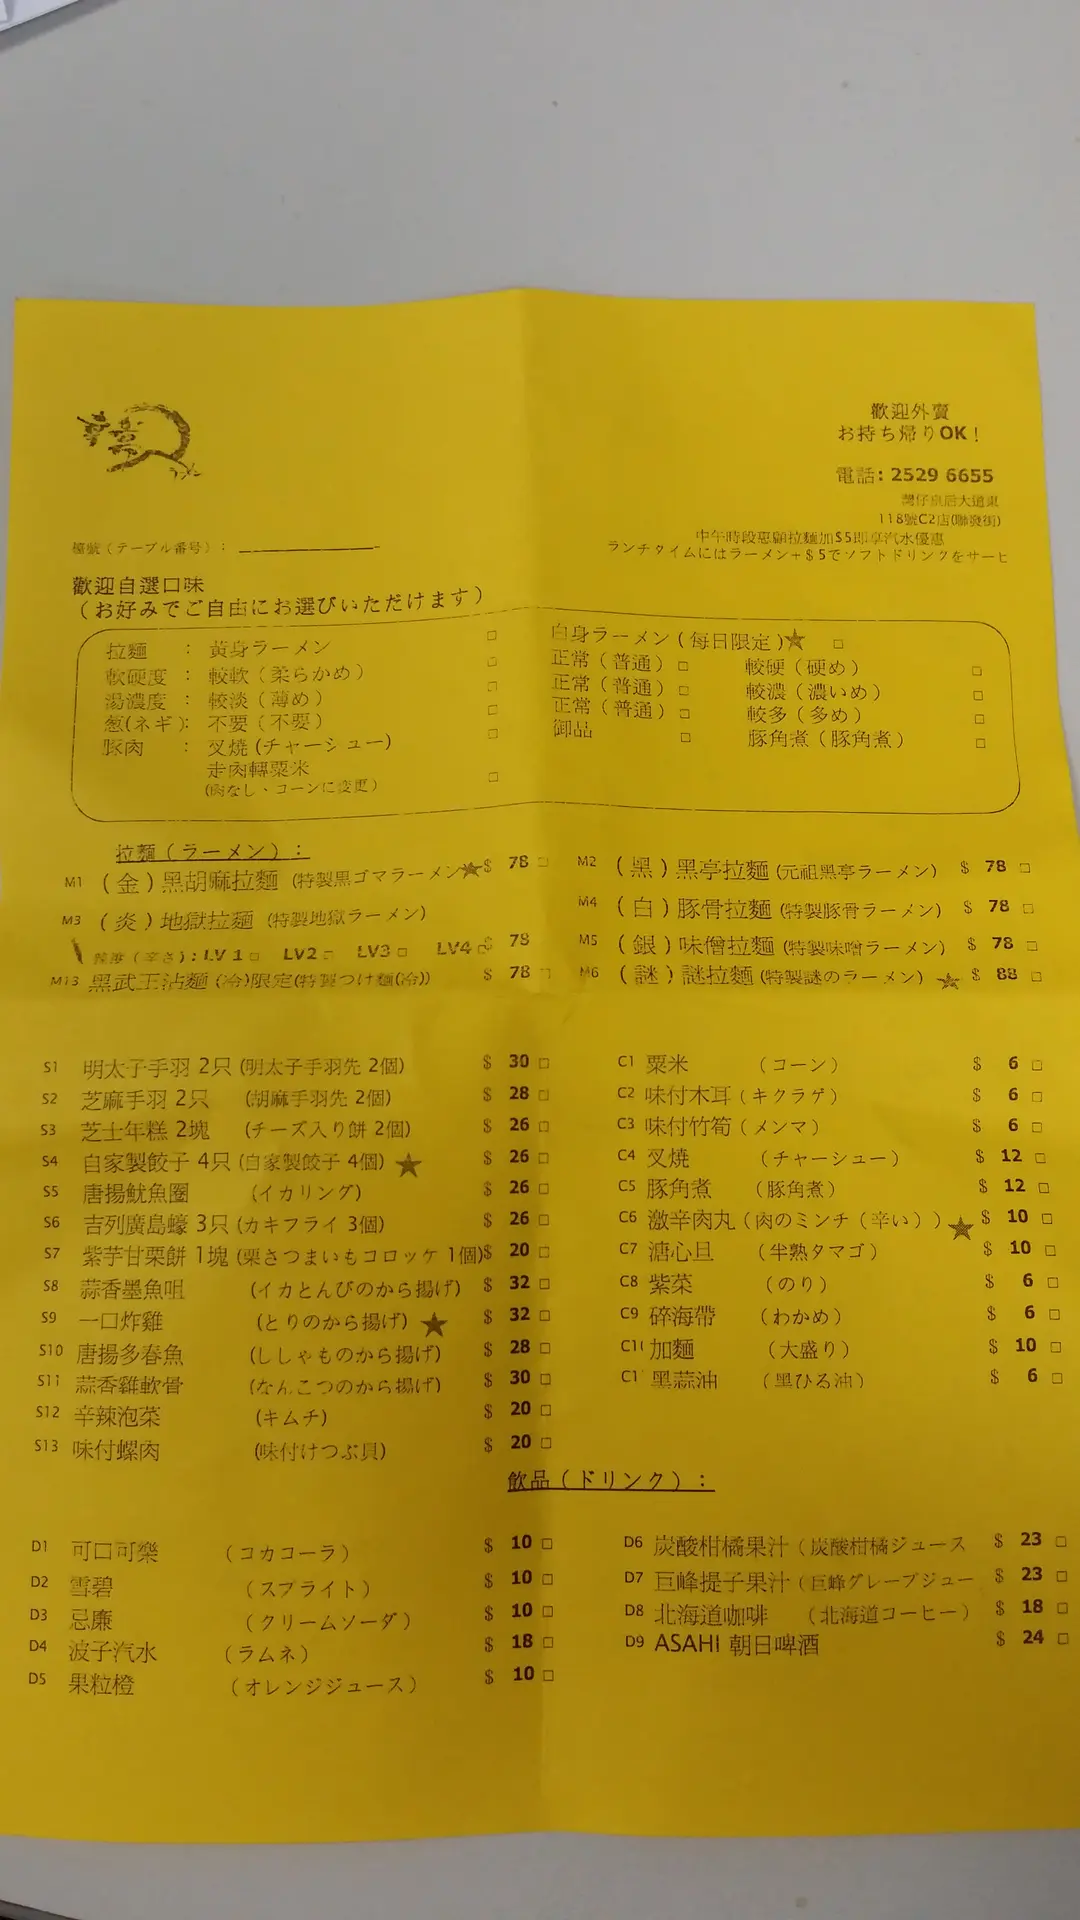 歡迎外賣
お持ち帰りOK！
電話: 2529 6655
灣仔皇后大道東
118號C2店(聯發街)
中午時段惠顧拉麵加$5即享汽水優惠
ランチタイムにはラーメン+$5でソフトドリンクをサービ
檯號(テーブル番号)：
歡迎自選口味
(お好みでご自由にお選びいただけます)
拉麵 ： 黃身ラーメン □ 白身ラーメン(毎日限定)★ □
軟硬度 ： 較軟(柔らかめ) □ 正常(普通) □ 較硬(硬め) □
湯濃度 ： 較淡(薄め) □ 正常(普通) □ 較濃(濃いめ) □
葱(ネギ)： 不要(不要) □ 正常(普通) □ 較多(多め) □
豚肉 ： 叉燒(チャーシュー) □ 御品 □ 豚角煮(豚角煮) □
走肉轉粟米 □
(肉なし、コーンに変更)
拉麵(ラーメン)：
M1 (金)黑胡麻拉麵 (特製黒ゴマラーメン★ $ 78 □
M2 (黑)黑亭拉麵 (元祖黑亭ラーメン) $ 78 □
M3 (炎)地獄拉麵 (特製地獄ラーメン)
M4 (白)豚骨拉麵 (特製豚骨ラーメン) $ 78 □
辣度(辛さ)：LV 1 □ LV2 □ LV3 □ LV4 □ $ 78
M5 (銀)味噌拉麵 (特製味噌ラーメン) $ 78 □
M13 黑武王沾麵 (冷)限定(特製つけ麵(冷)) $ 78 □
M6 (謎)謎拉麵 (特製謎のラーメン) ★ $ 88 □
S1 明太子手羽 2只 (明太子手羽先 2個) $ 30 □
S2 芝麻手羽 2只 (胡麻手羽先 2個) $ 28 □
S3 芝士年糕 2塊 (チーズ入り餅 2個) $ 26 □
S4 自家製餃子 4只 (自家製餃子 4個) ★ $ 26 □
S5 唐揚魷魚圈 (イカリング) $ 26 □
S6 吉列廣島蠔 3只 (カキフライ 3個) $ 26 □
S7 紫芋甘栗餅 1塊 (栗さつまいもコロッケ 1個) $ 20 □
S8 蒜香墨魚咀 (イカとんびのから揚げ) $ 32 □
S9 一口炸雞 (とりのから揚げ) ★ $ 32 □
S10 唐揚多春魚 (ししゃものから揚げ) $ 28 □
S11 蒜香雞軟骨 (なんこつのから揚げ) $ 30 □
S12 辛辣泡菜 (キムチ) $ 20 □
S13 味付螺肉 (味付けつぶ貝) $ 20 □
C1 粟米 (コーン) $ 6 □
C2 味付木耳 (キクラゲ) $ 6 □
C3 味付竹筍 (メンマ) $ 6 □
C4 叉燒 (チャーシュー) $ 12 □
C5 豚角煮 (豚角煮) $ 12 □
C6 激辛肉丸 (肉のミンチ(辛い)) ★ $ 10 □
C7 溏心旦 (半熟タマゴ) $ 10 □
C8 紫菜 (のり) $ 6 □
C9 碎海帶 (わかめ) $ 6 □
C1( 加麵 (大盛り) $ 10 □
C1' 黑蒜油 (黒ひる油) $ 6 □
飲品(ドリンク)：
D1 可口可樂 (コカコーラ) $ 10 □
D2 雪碧 (スプライト) $ 10 □
D3 忌廉 (クリームソーダ) $ 10 □
D4 波子汽水 (ラムネ) $ 18 □
D5 果粒橙 (オレンジジュース) $ 10 □
D6 炭酸柑橘果汁 (炭酸柑橘ジュース $ 23 □
D7 巨峰提子果汁 (巨峰グレープジュー $ 23 □
D8 北海道咖啡 (北海道コーヒー) $ 18 □
D9 ASAHI 朝日啤酒 $ 24 □